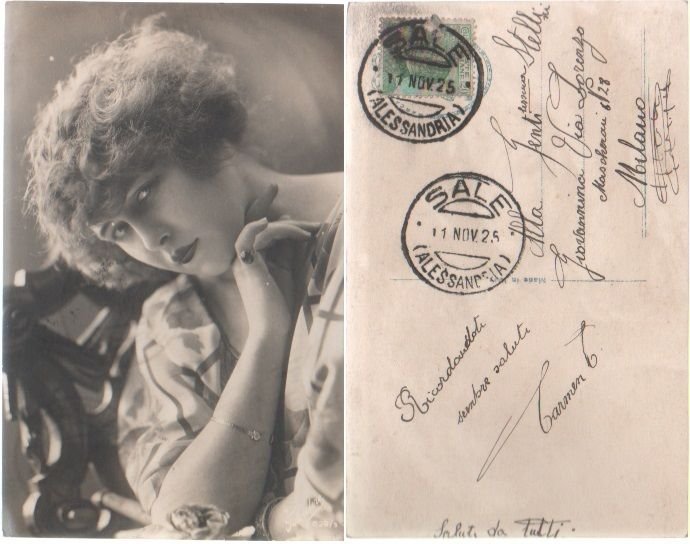 SALE
11 NOV. 25
(ALESSANDRIA)
SALE
11 NOV. 25
(ALESSANDRIA)
Alla Gent
Giovannina Via Lorenzo
Mascheroni
Milano
Made in Italy
Ricordandoti
sempre saluti
Carmen T.
Saluti da tutti.